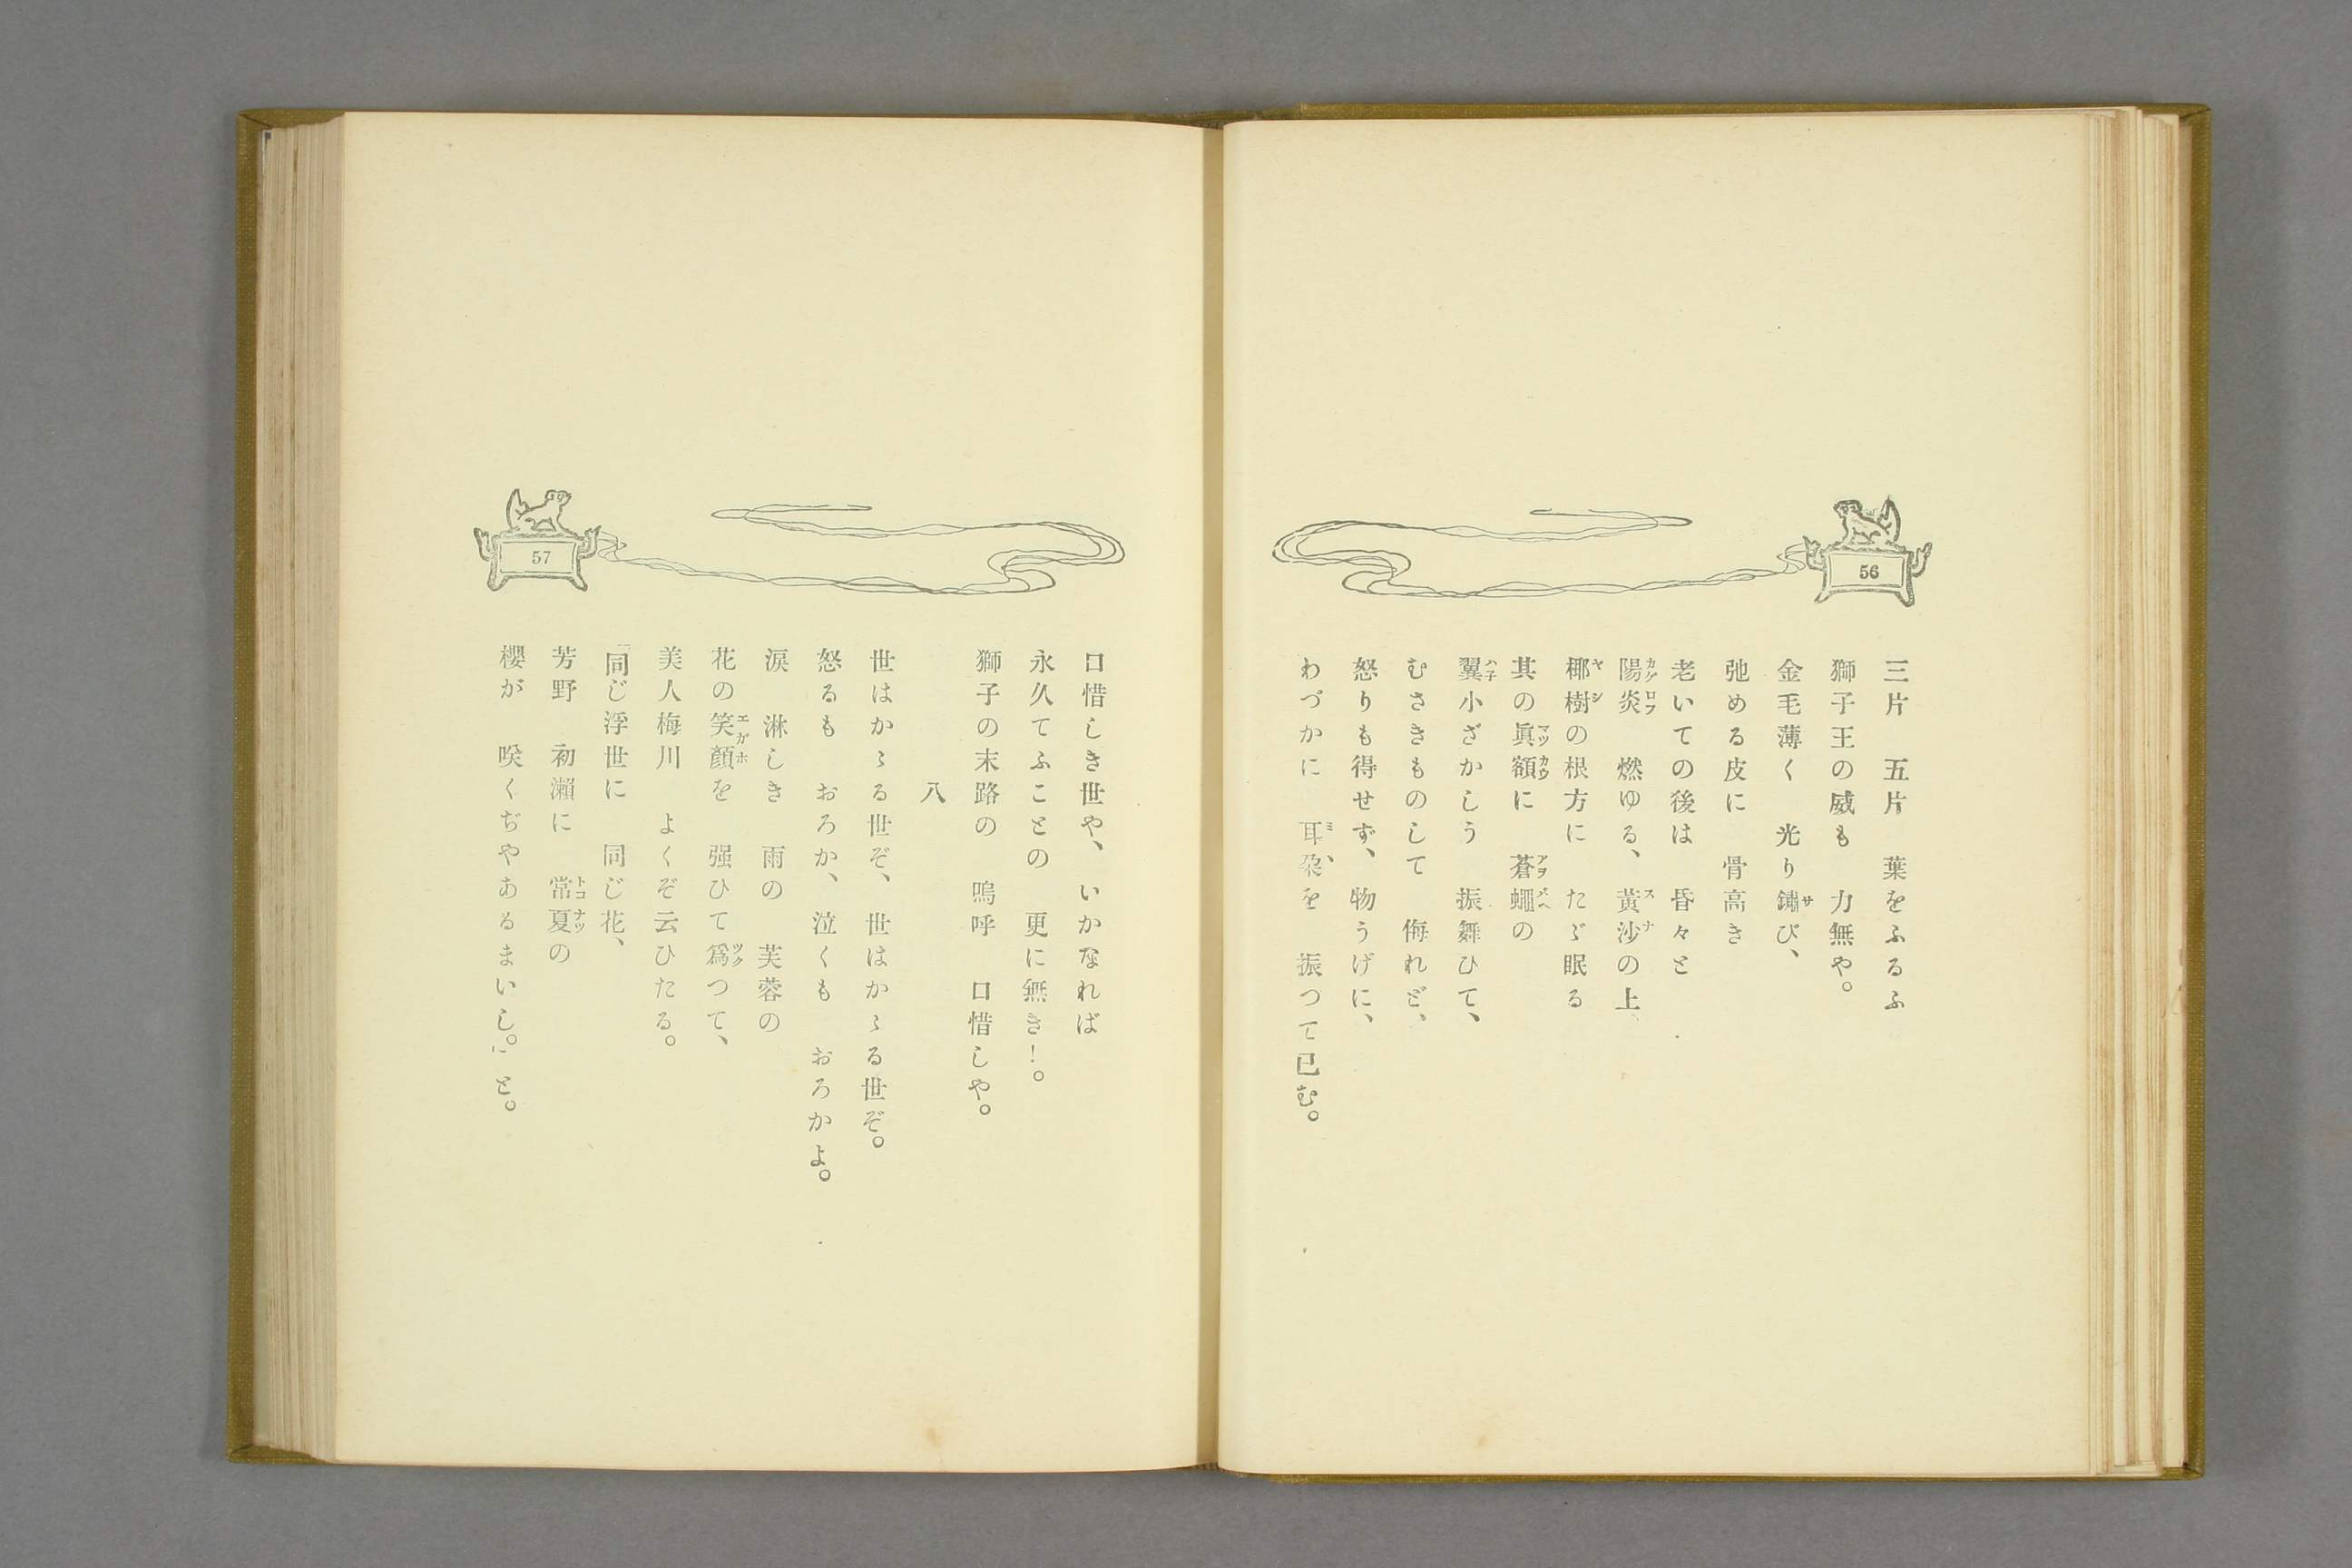 56
三片　五片　葉をふるふ
獅子王の威も　力無や。
金毛薄く　光り鏽び、
弛める皮に　骨高き
老いての後は　昏々と
陽炎　燃ゆる、黃沙の上、
椰樹の根方に　たゞ眠る
其の眞額に　蒼蠅の
翼小ざかしう　振舞ひて、
むさきものして　侮れど、
怒りも得せず、物うげに、
わづかに　耳朶を　振つて已む。
57
口惜しき世や、いかなれば
永久てふことの　更に無き！。
獅子の末路の　嗚呼　口惜しや。
八
世はかゝる世ぞ、世はかゝる世ぞ。
怒るも　おろか、泣くも　おろかよ。
淚　淋しき　雨の　芙蓉の
花の笑顏を　强ひて爲つて、
美人梅川　よくぞ云ひたる。
「同じ浮世に　同じ花、
芳野　初瀨に　常夏の
櫻が　咲くぢやあるまいし。」と。